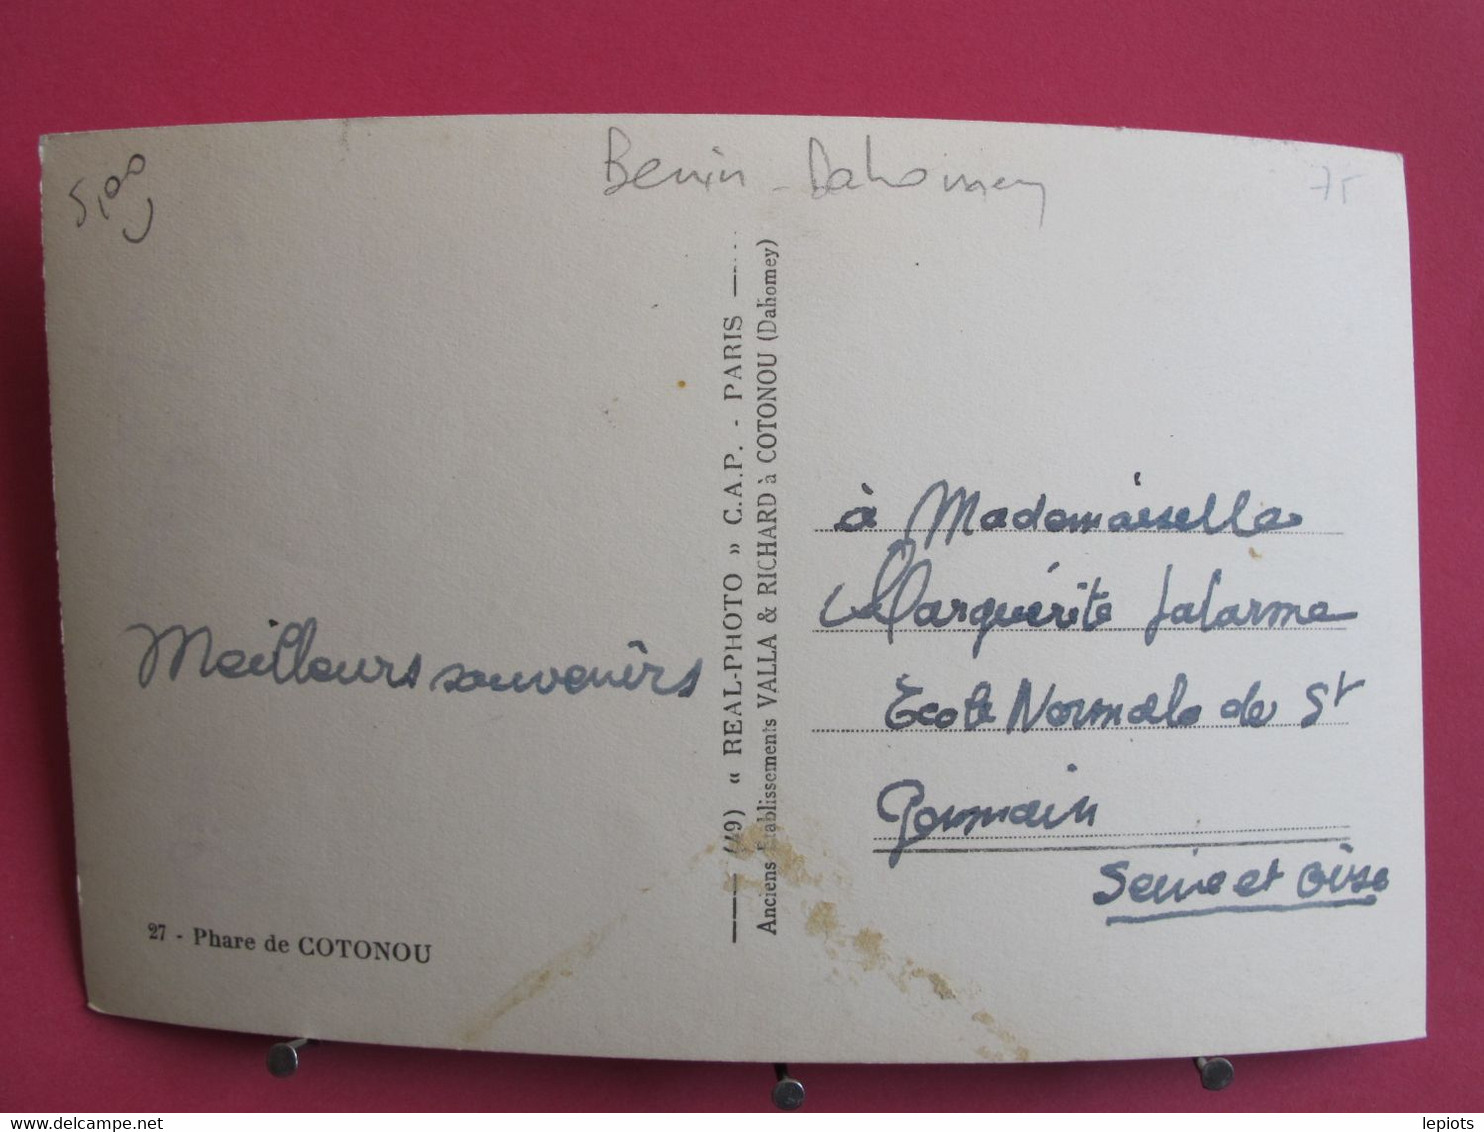 5,00
Benin - Dahomey
75
Meilleurs souvenirs
27 - Phare de COTONOU
(49) « REAL-PHOTO » C.A.P. - PARIS
Anciens Établissements VALLA & RICHARD à COTONOU (Dahomey)
à Mademoiselle
Marguérite Lalarme
École Normale de St
Germain
Seine et Oise
delcampe.net
lepiots